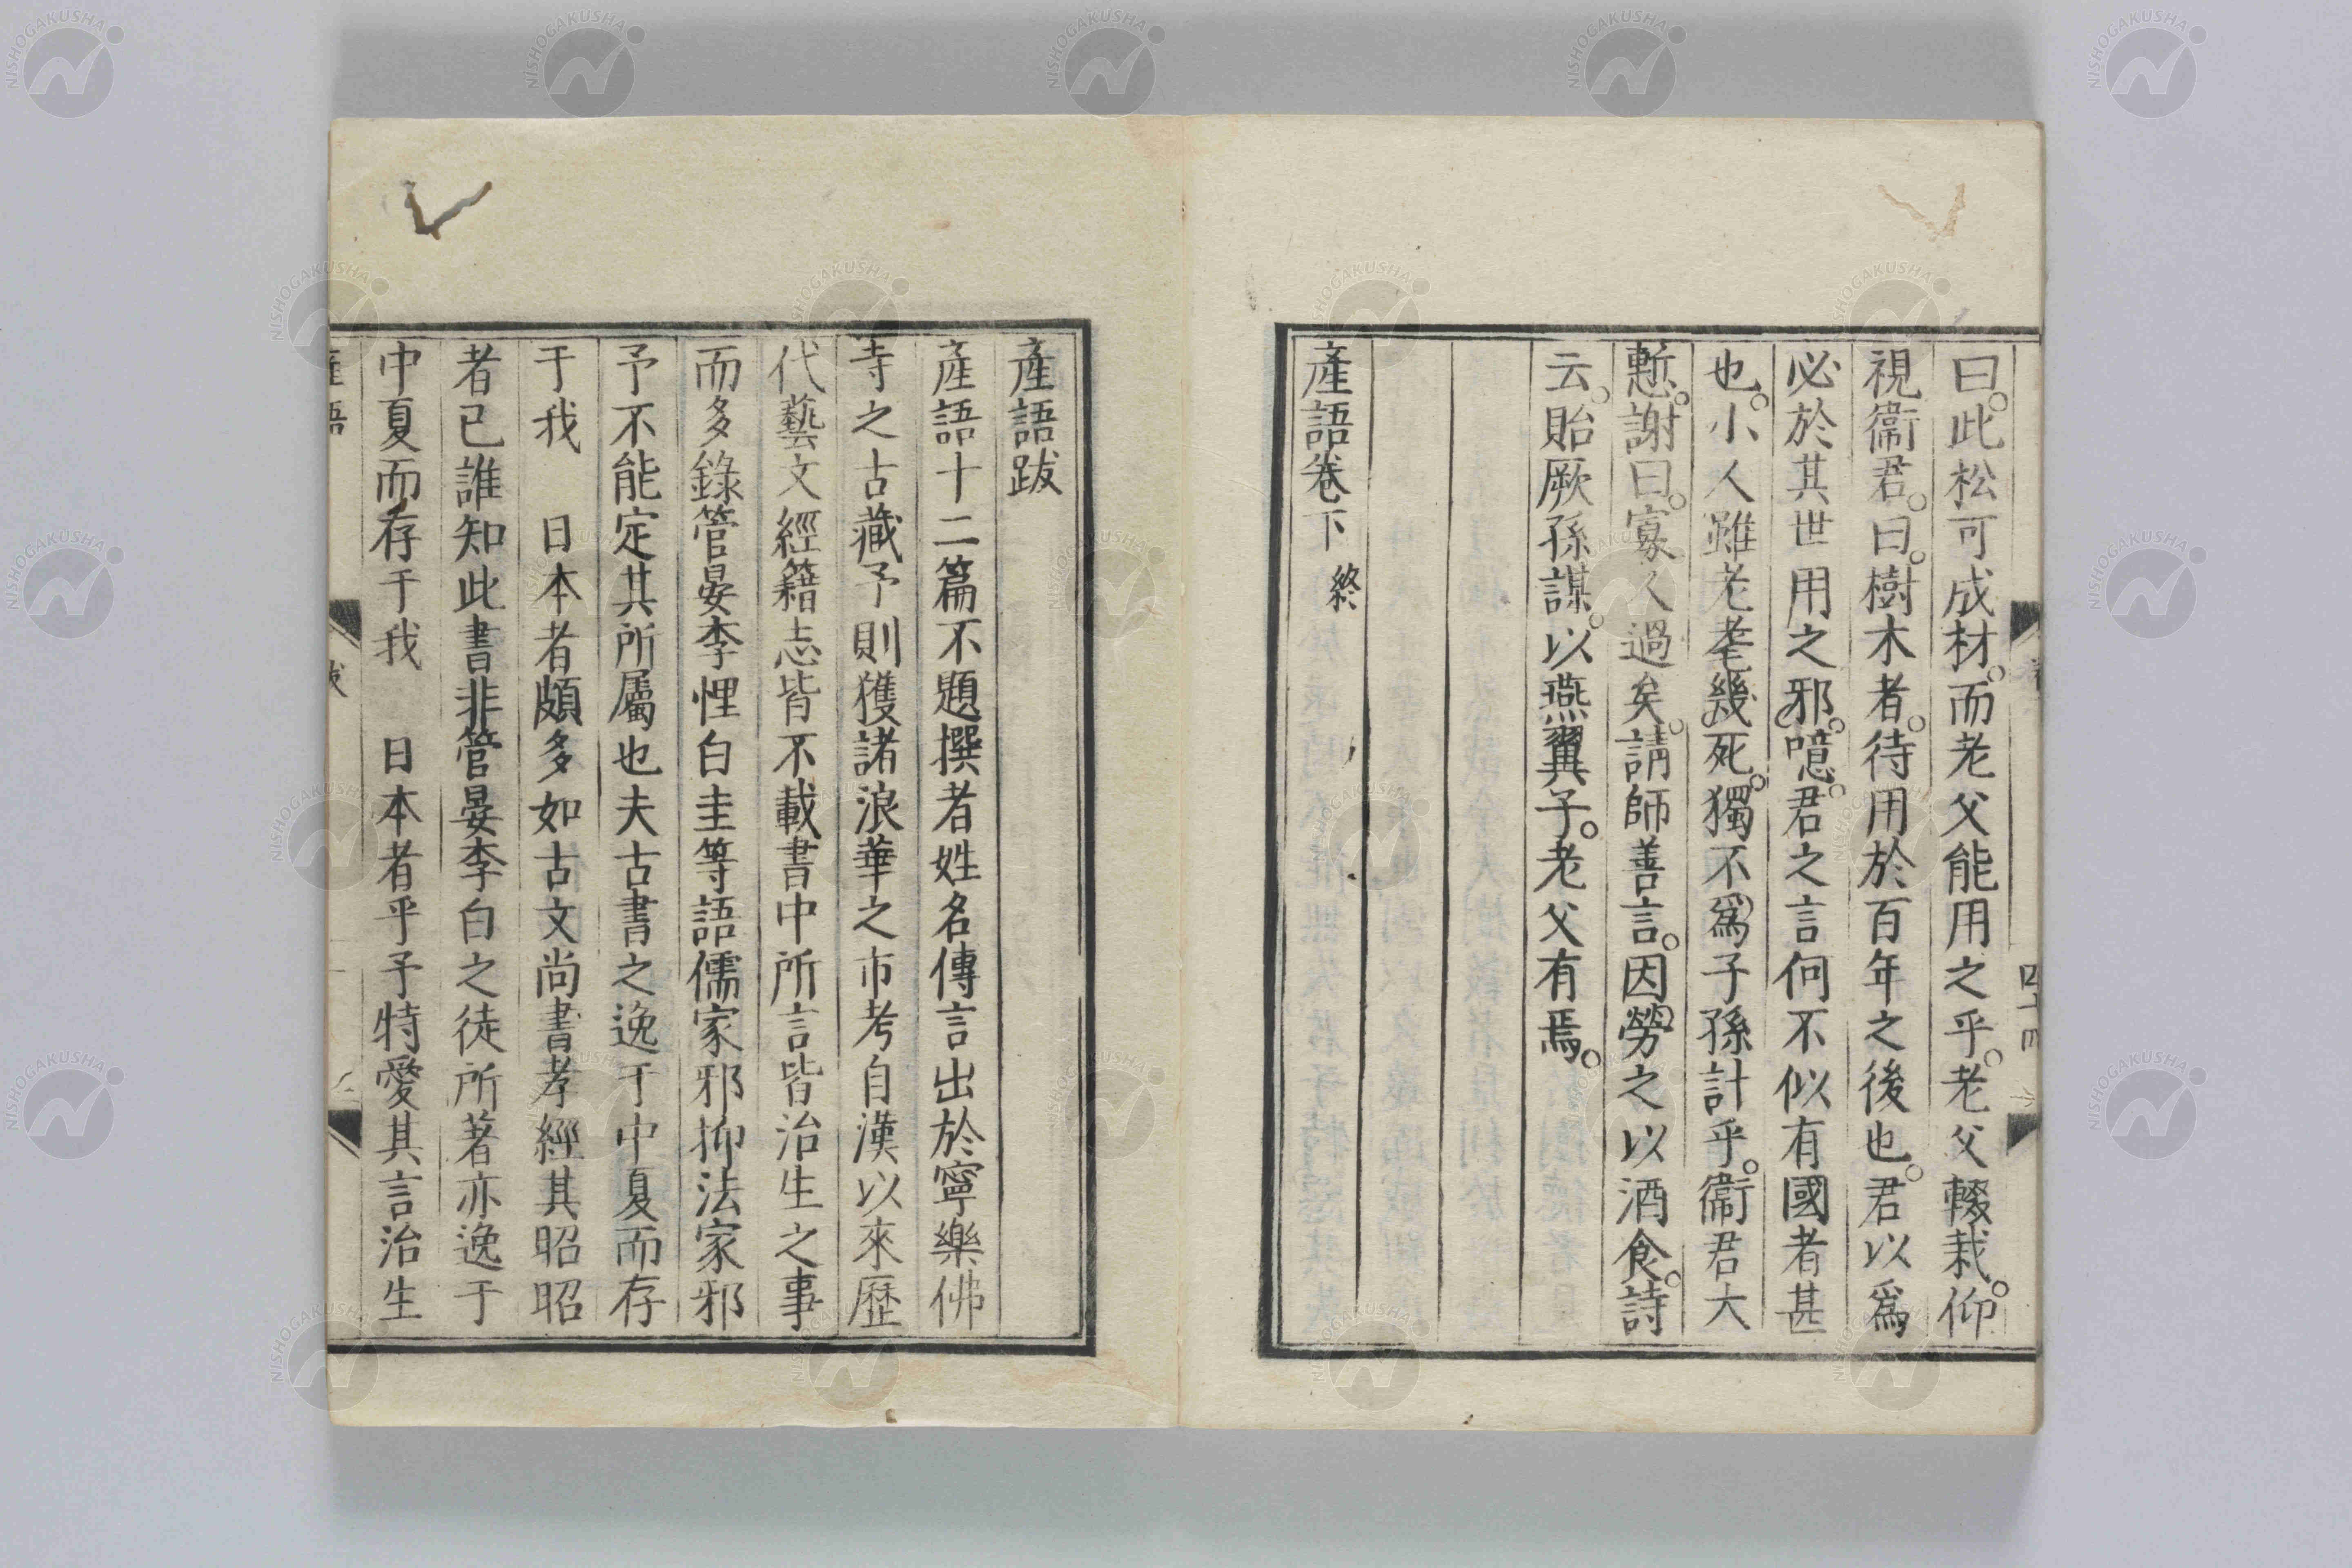 曰。此松可成材。而老父能用之乎。老父輟栽。仰
視衞君。曰。樹木者。待用於百年之後也。君以爲
必於其世用之邪。噫。君之言何不似有國者甚
也。小人雖老耄幾死。獨不爲子孫計乎。衞君大
慙。謝曰。寡人過矣。請師善言。因勞之以酒食。詩
云。貽厥孫謀。以燕翼子。老父有焉。
產語卷下 終
產語跋
產語十二篇不題撰者姓名傳言出於寧樂佛
寺之古藏予則獲諸浪華之市考自漢以來歷
代藝文經籍志皆不載書中所言皆治生之事
而多錄管晏李悝白圭等語儒家邪抑法家邪
予不能定其所屬也夫古書之逸于中夏而存
于我 日本者頗多如古文尚書孝經其昭昭
者已誰知此書非管晏李白之徒所著亦逸于
中夏而存于我 日本者乎予特愛其言治生
產語
跋
NISHOGAKUSHA